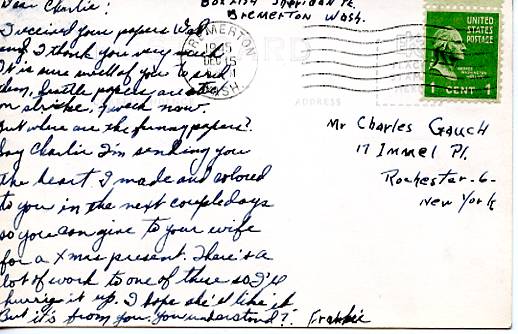 Dear Charlie!
I received your papers Wed.
and I thank you very much.
It is sure swell of you to send
dem, Seattle papers are still
on strike, 1 week now.
But where are the funny papers?
Say Charlie I'm sending you
the heart I made and colored
to you in the next couple days
so you can give to your wife
for a Xmas present. There's a
lot of work to one of these so I'll
hurrie it up. I hope she'd like it
But it's from you. You understand?
Frankie
Sheridan Pk.
Bremerton Wash.
BREMERTON
DEC 15
WASH.
ADDRESS
UNITED
STATES
POSTAGE
1 CENT 1
Mr Charles Gauch
17 Immel Pl.
Rochester-6-
New York